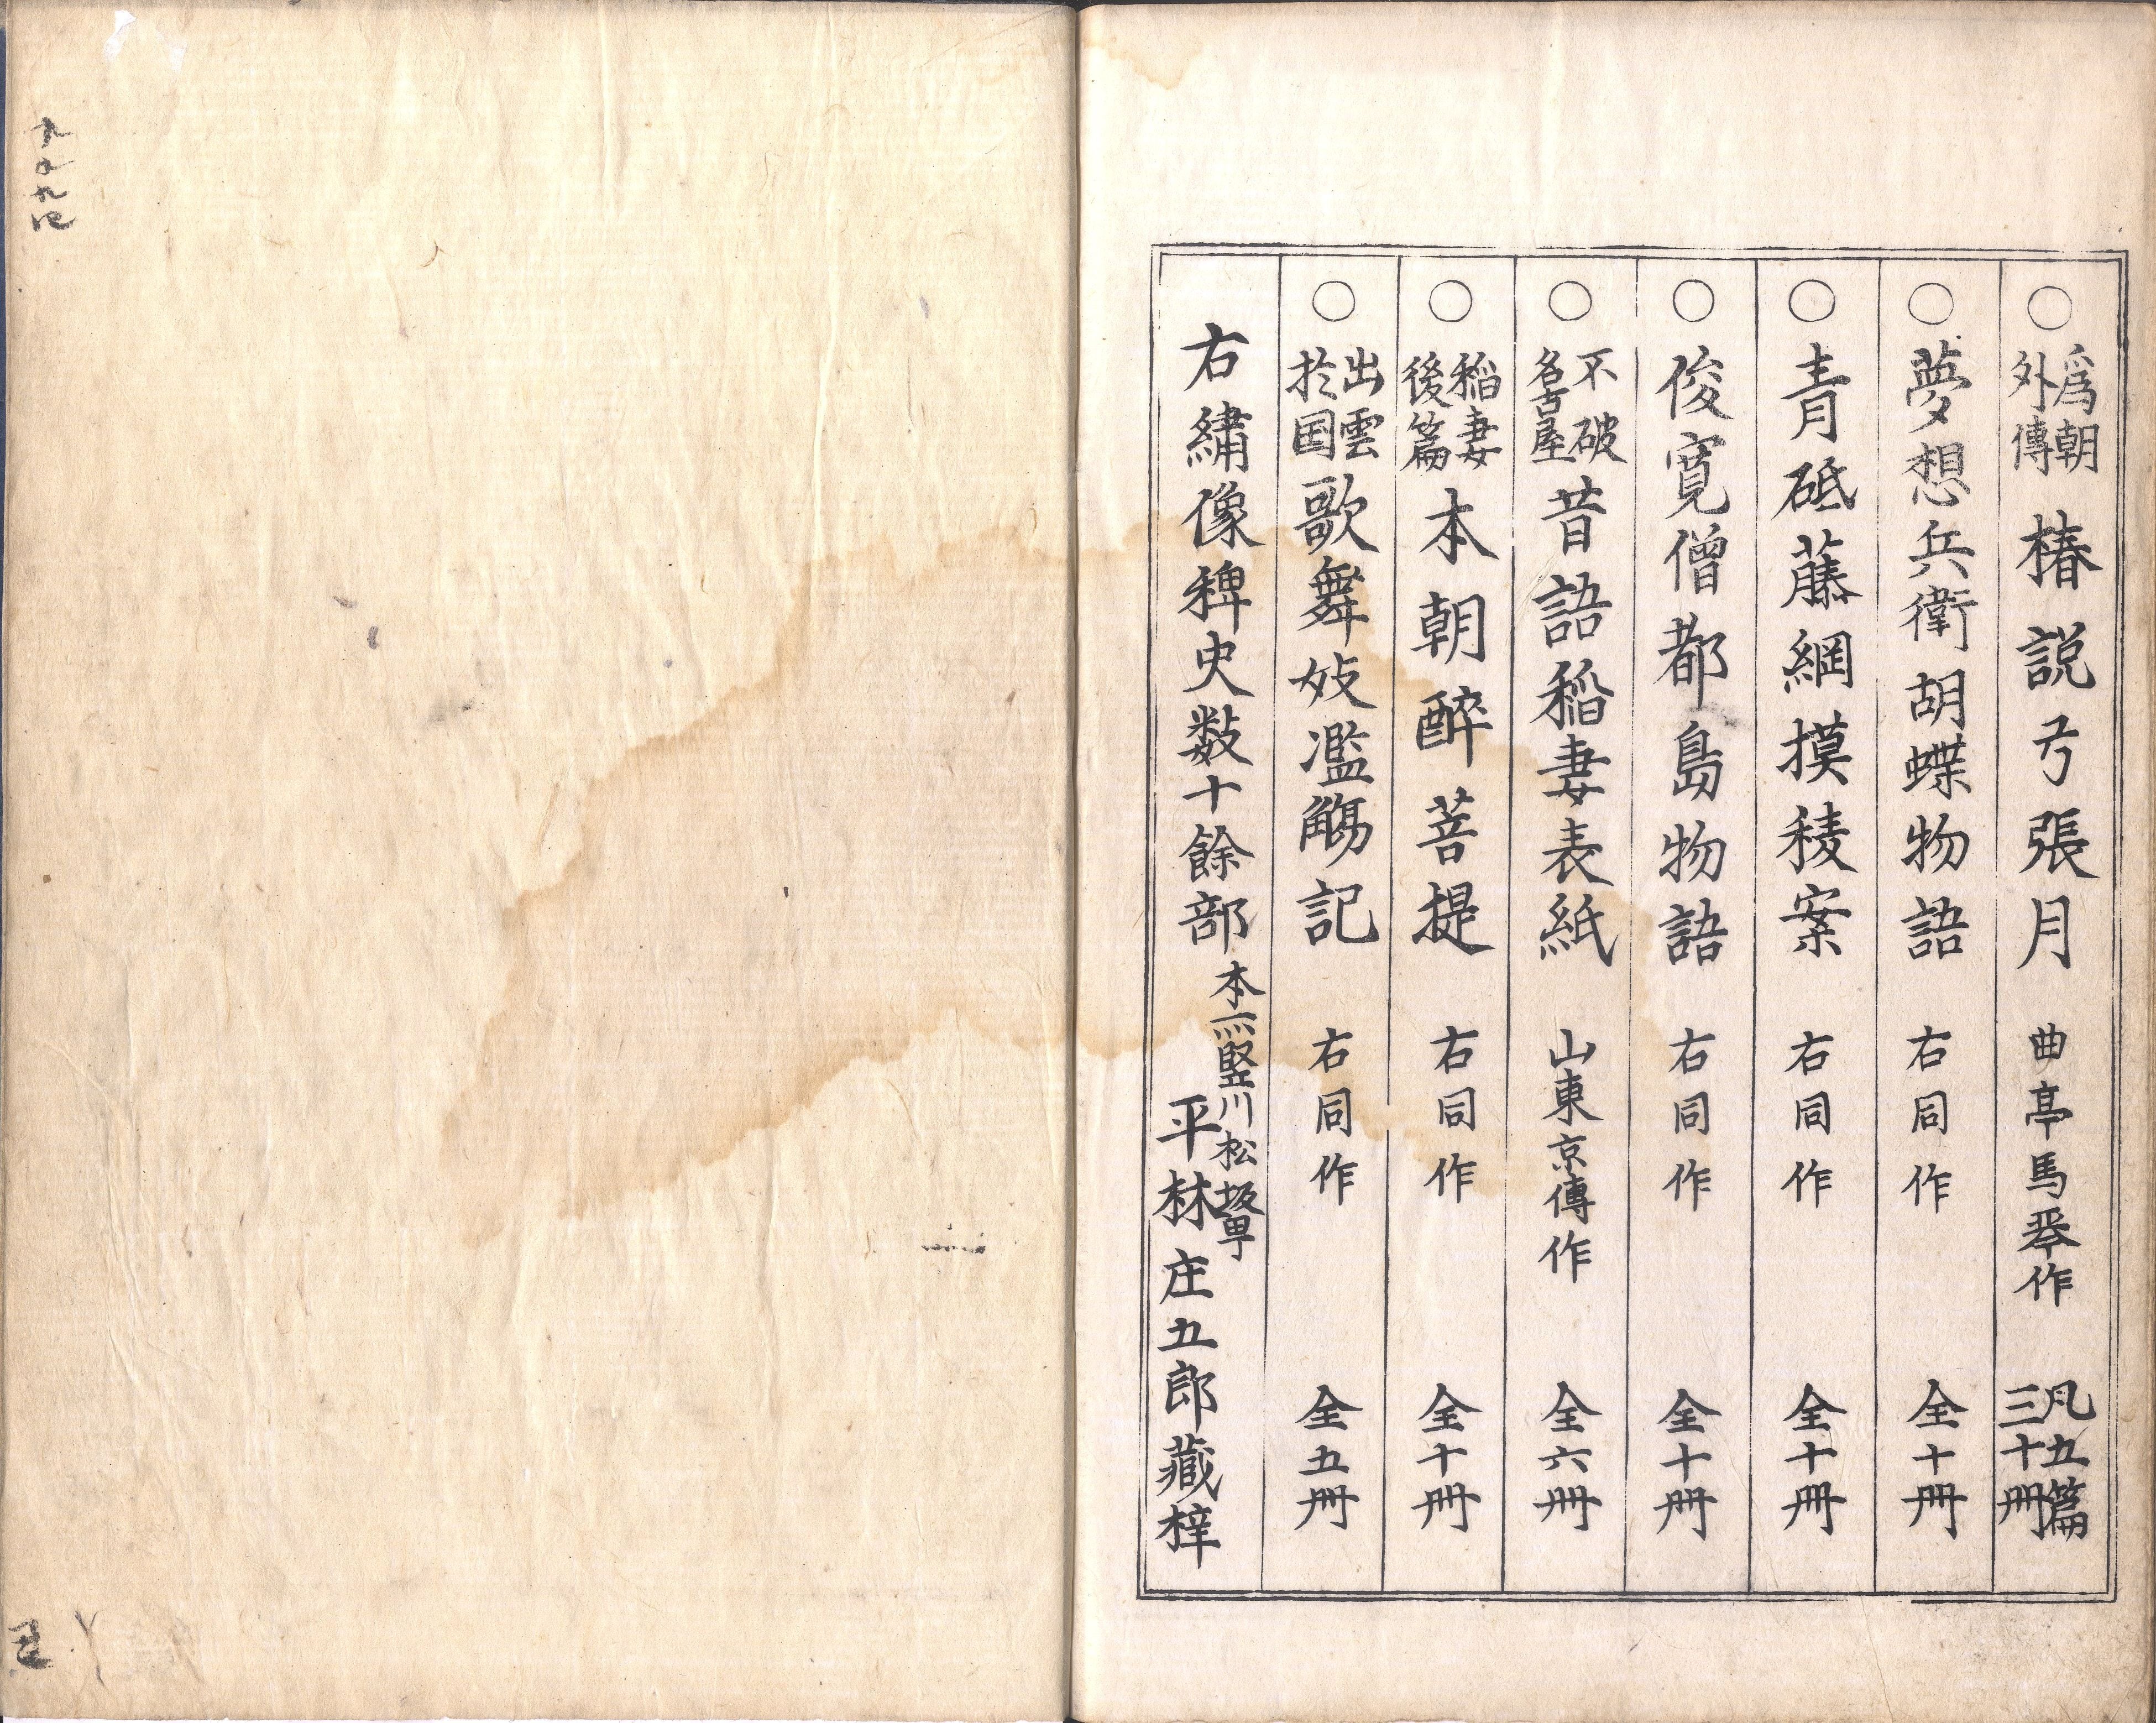 ○爲朝外傳 椿説弓張月 曲亭馬琴作 凡五篇三十冊
○夢想兵衛胡蝶物語 右同作 全十冊
○青砥藤綱摸稜案 右同作 全十冊
○俊寛僧都島物語 右同作 全十冊
○不破名古屋 昔語稲妻表紙 山東京傳作 全六冊
○稲妻後篇 本朝醉菩提 右同作 全十冊
○出雲於国 歌舞妓濫觴記 右同作 全五冊
右繡像稗史数十餘部
本所竪川松坂町
平林庄五郎藏梓